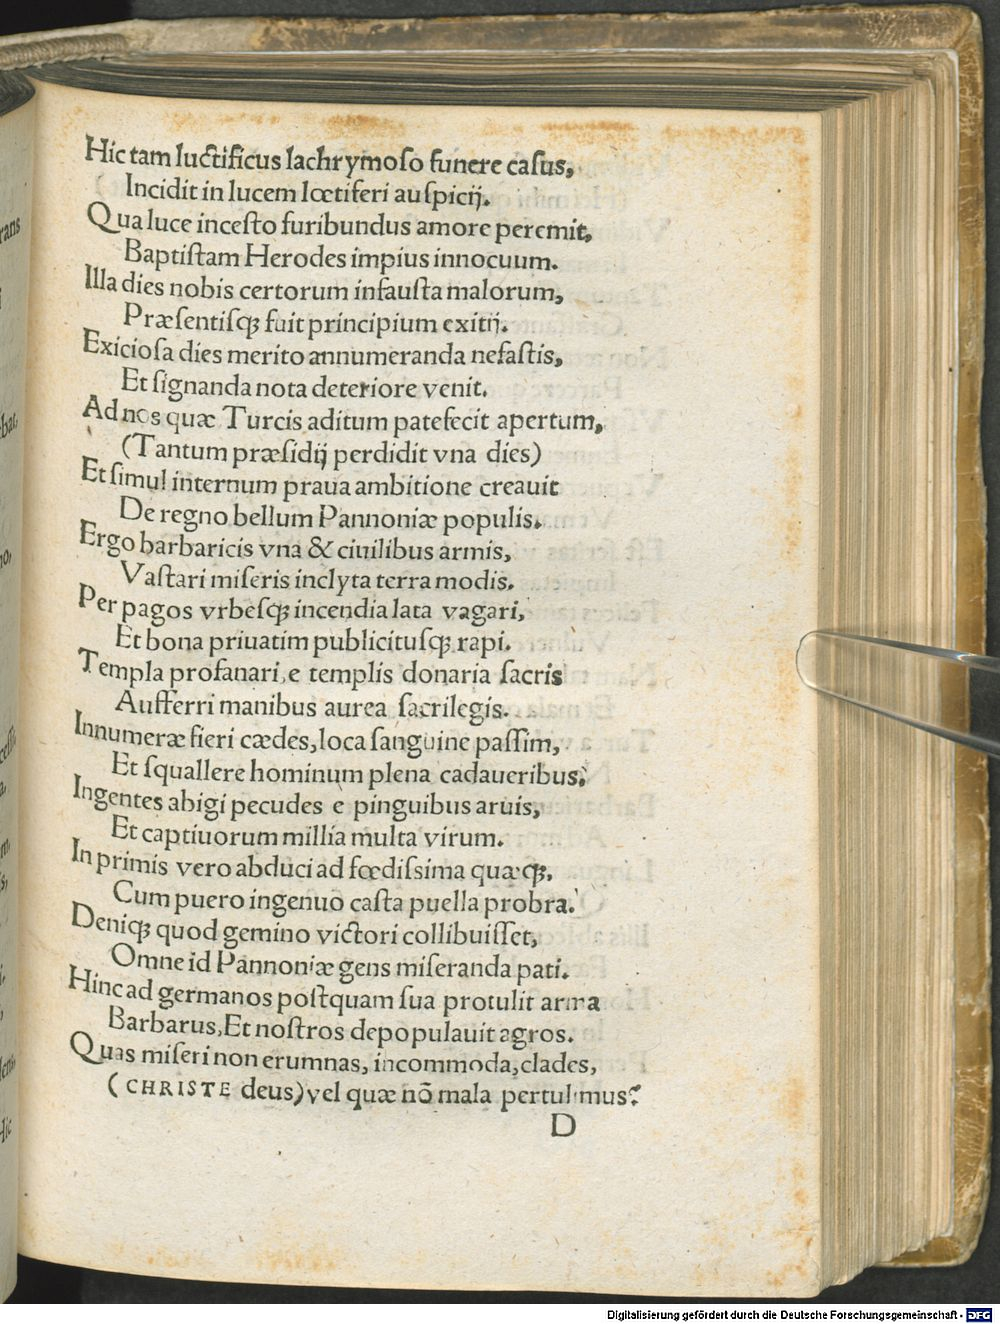 Hic tam luctificus lachrymoso funere casus,
Incidit in lucem lœtiferi auspicij.
Qua luce incesto furibundus amore peremit,
Baptistam Herodes impius innocuum.
Illa dies nobis certorum infausta malorum,
Præsentisq; fuit principium exitij.
Exiciosa dies merito annumeranda nefastis,
Et signanda nota deteriore venit.
Ad nos quæ Turcis aditum patefecit apertum,
(Tantum præsidij perdidit vna dies)
Et simul internum praua ambitione creauit
De regno bellum Pannoniæ populis.
Ergo barbaricis vna & ciuilibus armis,
Vastari miseris inclyta terra modis.
Per pagos vrbesq; incendia lata vagari,
Et bona priuatim publicitusq; rapi.
Templa profanari, e templis donaria sacris
Aufferri manibus aurea sacrilegis.
Innumeræ fieri cædes, loca sanguine passim,
Et squallere hominum plena cadaueribus.
Ingentes abigi pecudes e pinguibus aruis,
Et captiuorum millia multa virum.
In primis vero abduci ad fœdissima quæq;,
Cum puero ingenuo casta puella probra.
Deniq; quod gemino victori collibuisset,
Omne id Pannoniæ gens miseranda pati.
Hinc ad germanos postquam sua protulit arma
Barbarus, Et nostros depopulauit agros.
Quas miseri non erumnas, incommoda, clades,
(CHRISTE deus) vel quæ nō mala pertulimus?
D
rans
bat,
Hic
Digitalisierung gefördert durch die Deutsche Forschungsgemeinschaft - DFG